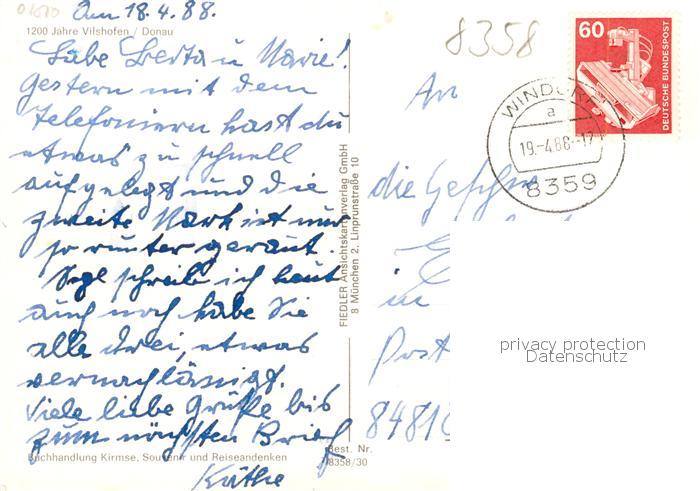 01610
Am 18.4.88.
1200 Jahre Vilshofen / Donau
Liebe Berta u Marie!
Gestern mit dem
Telefonieren hast du
etwas zu schnell
aufgelegt und die
zweite Mark ist nur
so runter geraut.
schreib ich heut
auch noch habe Sie
alle drei, etwas
vernachlässigt.
Viele liebe Grüße bis
zum nächsten Brief
Käthe
Buchhandlung Kirmse, Souvenir und Reiseandenken
Best. Nr.
8358/30
FIEDLER Ansichtskartenverlag GmbH
8 München 2. Linprunstraße 10
8358
60
DEUTSCHE BUNDESPOST
WINDORF
a
19.-4.88-17
8359
An
die
in
Post
8481
privacy protection
Datenschutz